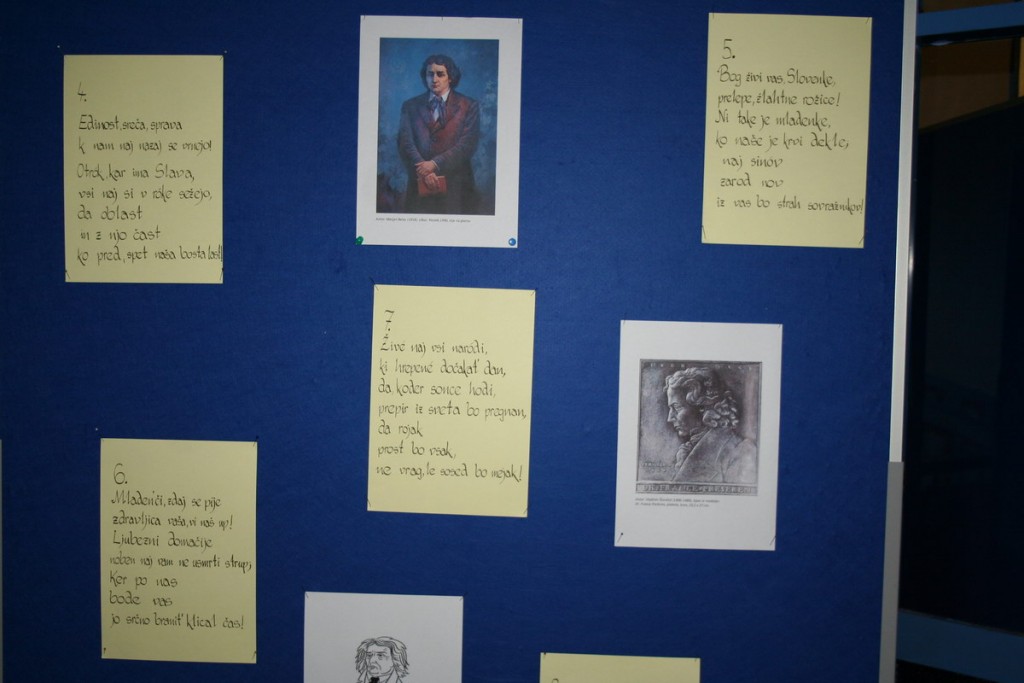 4.
Edinost, sreča, sprava
k nam naj nazaj se vrnejo!
Otrok, kar ima Slava,
vsi naj si v róke sežejo,
da oblast
in z njo čast
ko pred, spet naša bosta last!
5.
Bog živi vas, Slovenke,
prelepe, žlahtne rožice!
Ni take je mladenke,
ko naše je krvi dekle,
naj sinóv
zarod nov
iz vas bo strah sovražnikov!
7.
Živé naj vsi naródi,
ki hrepené dočakat' dan,
da, koder sonce hodi,
prepir iz sveta bo pregnan,
da rojak
prost bo vsak,
ne vrag, le sosed bo mejak!
6.
Mladenči, zdaj se pije
zdravljica vaša, vi naš up!
Ljubezni domačije
noben naj vam ne usmrti strup,
Ker po nas
bode vas
jo srčno branit' klical čas!